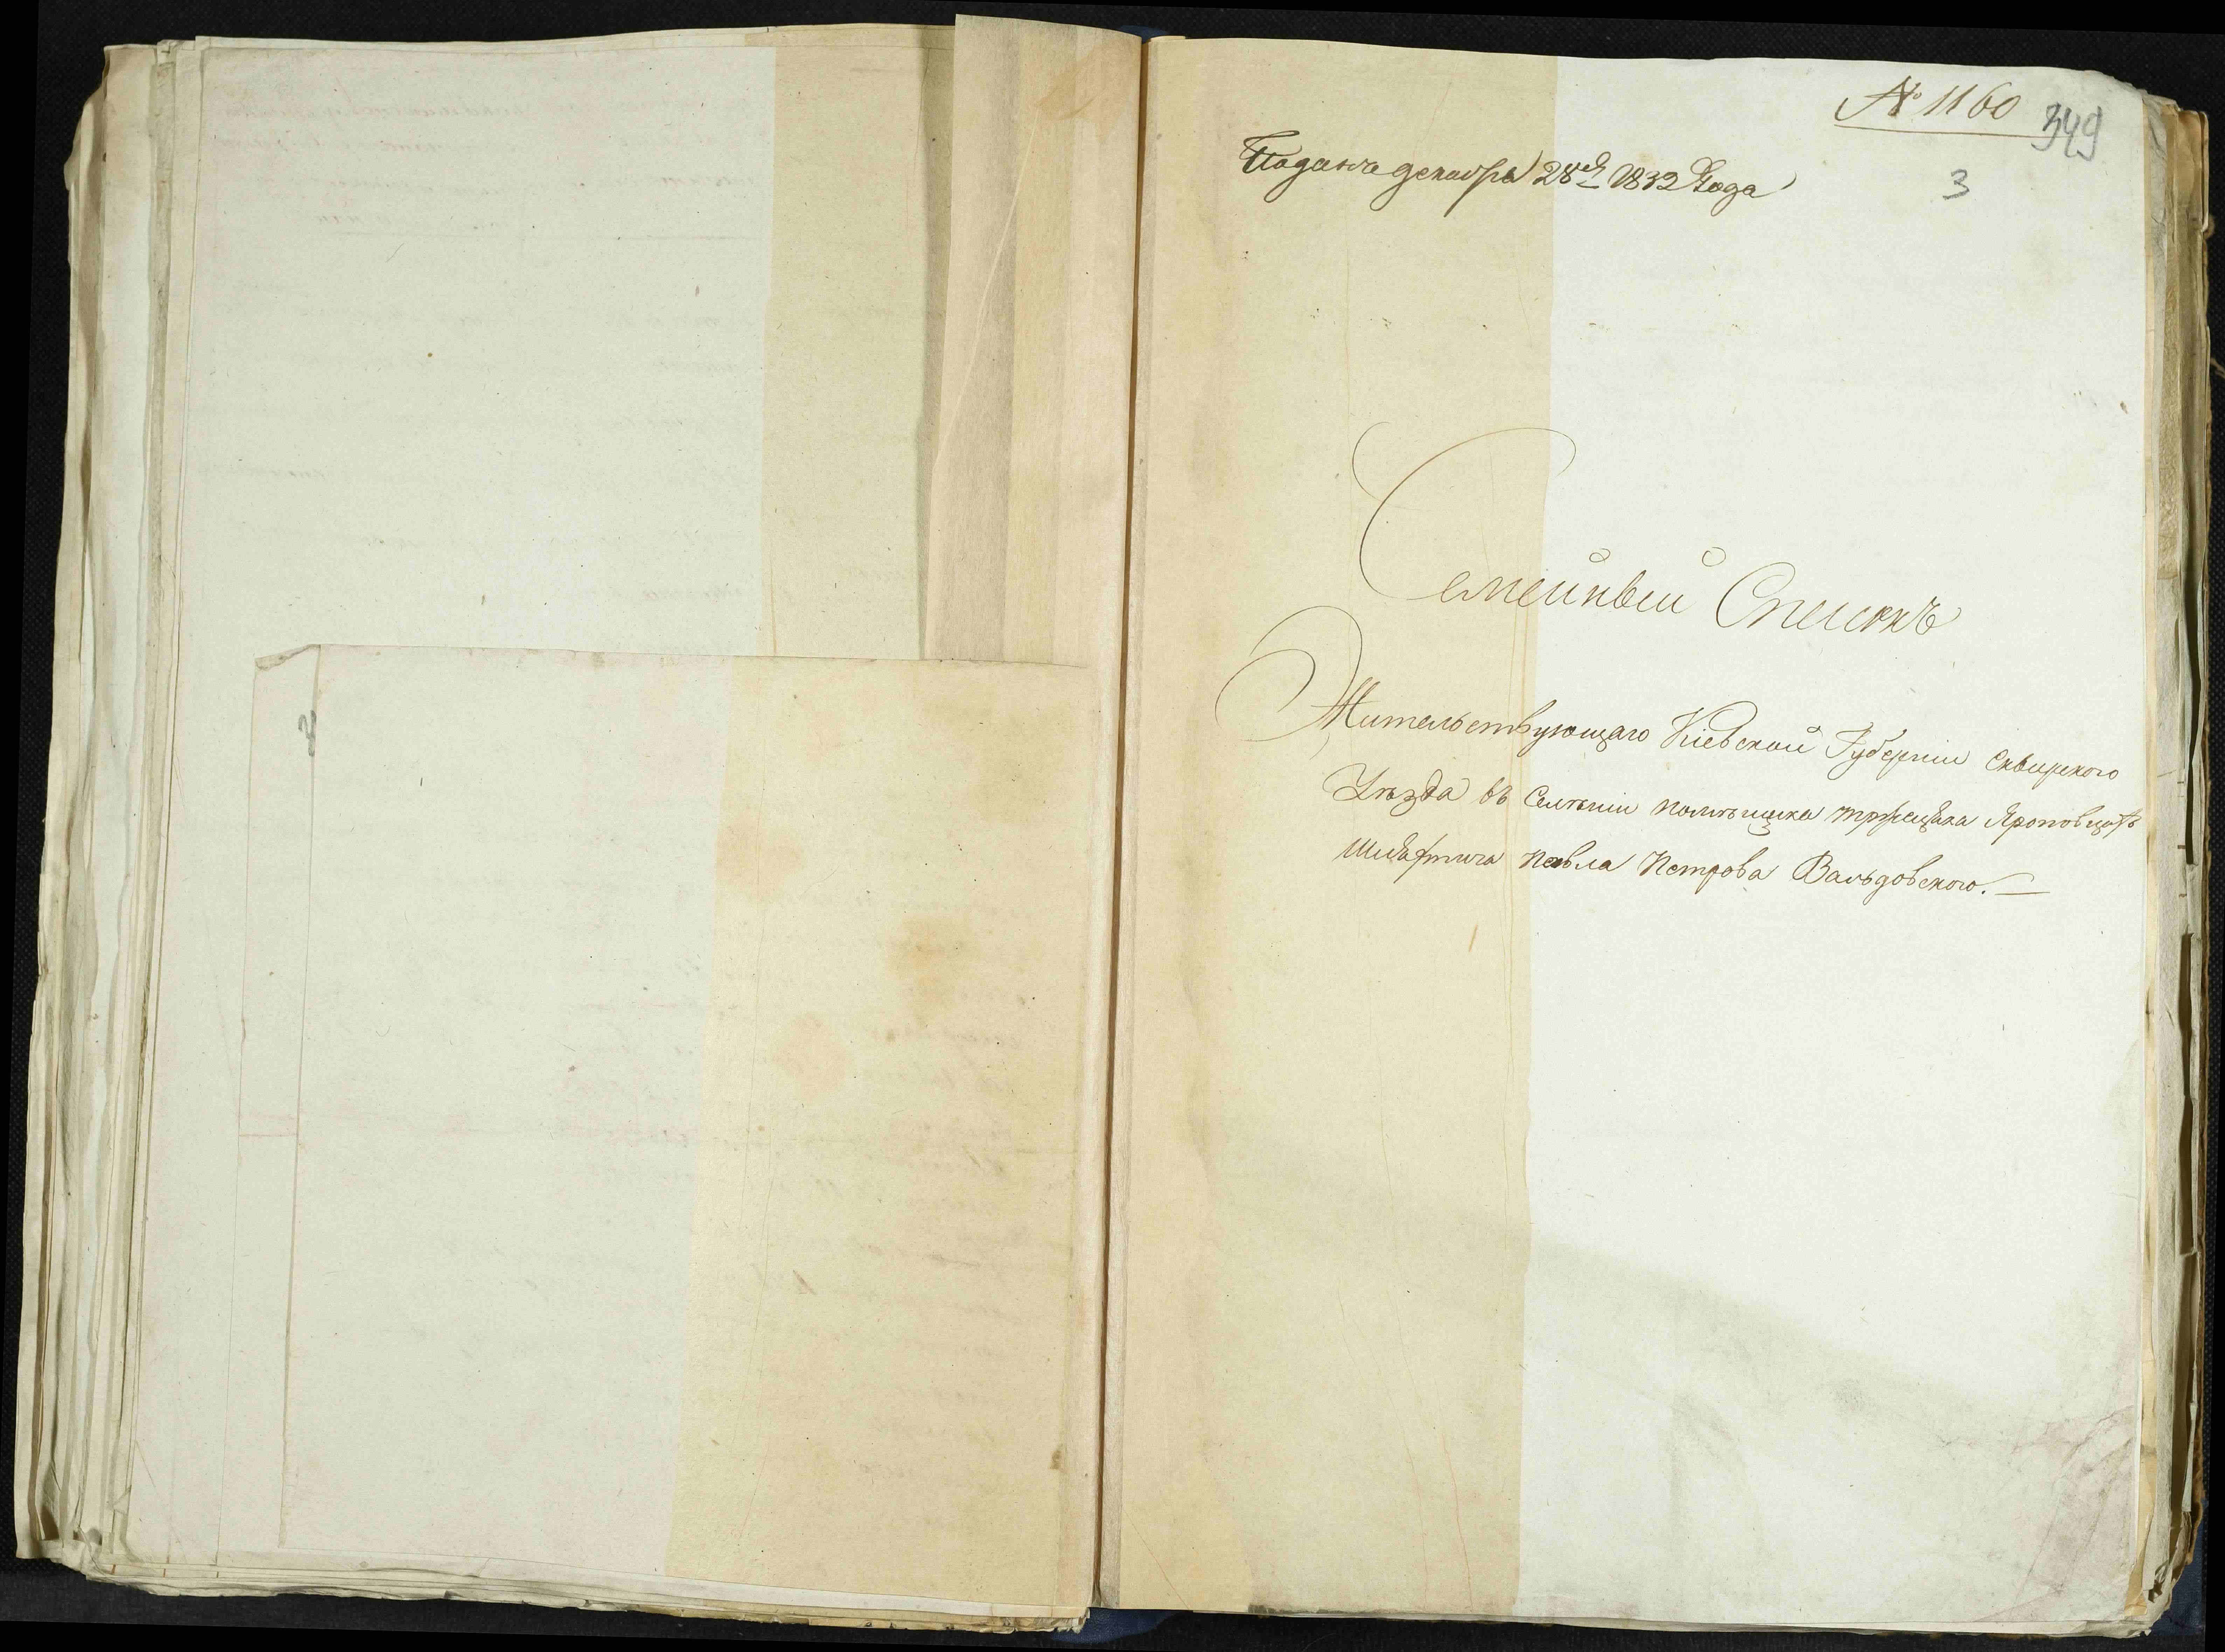 № 1160
349
Подано декабря 28го 1832 Года
3
Семейный Списокъ
Жительствующаго Кіевской Губерніи Сквирского
Уѣзда въ Селеніи помѣщика Яроповицахъ
Шляхтича Павла Петрова Вальдовского.